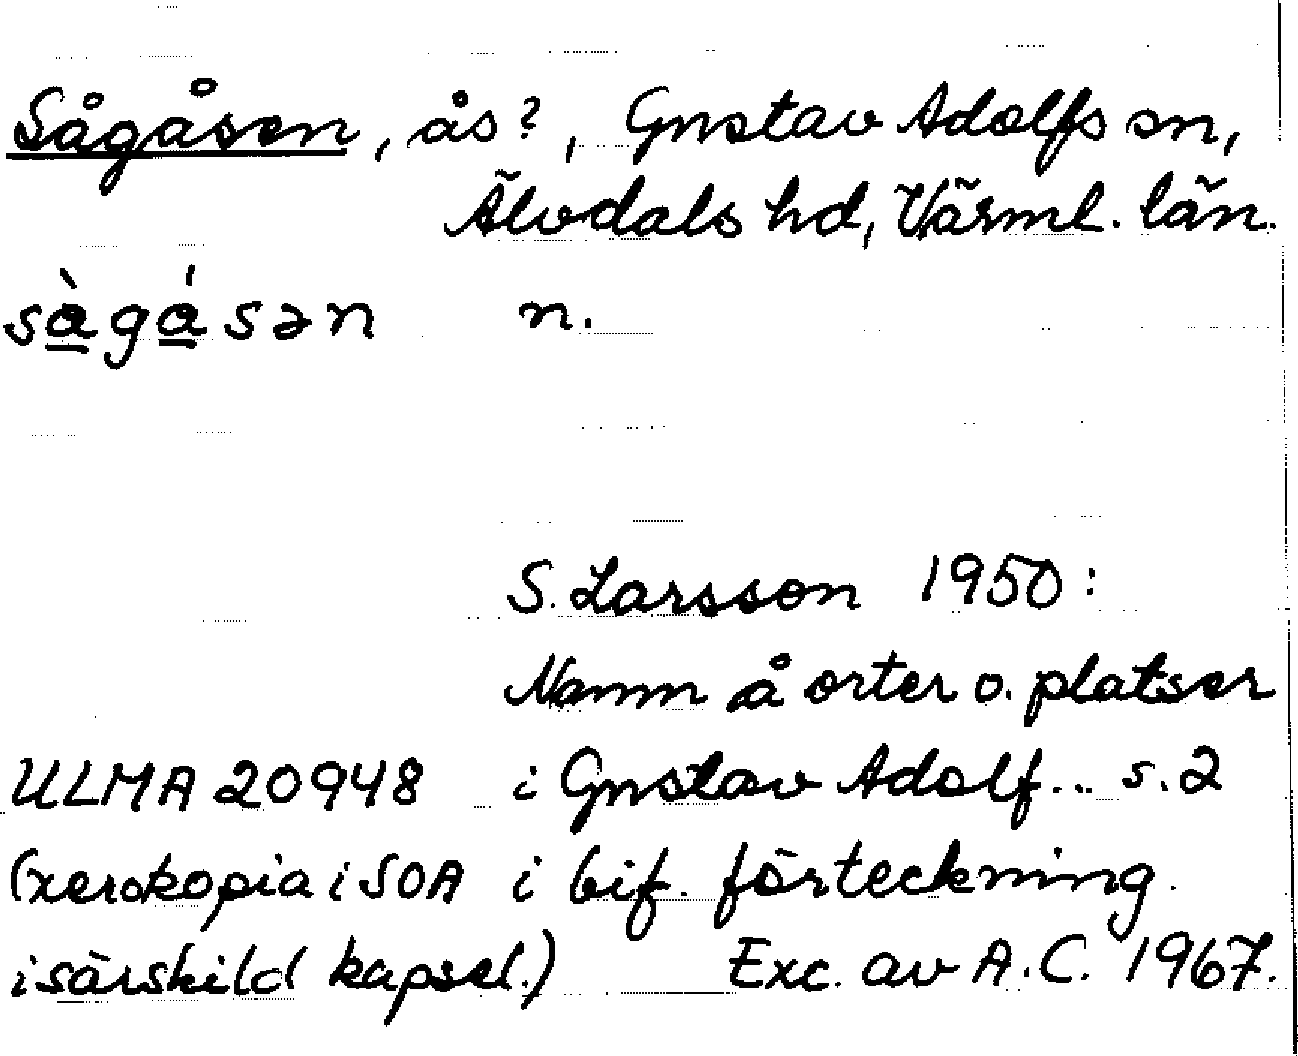 Sågåsen, ås?, Gustav Adolfs sn,
Älvdals hd, Värml. län.
sà̲gá̲sən n.
S. Larsson 1950:
Namn å orter o. platser
ULMA 20948 i Gustav Adolf... s. 2
(xerokopia i SOA i bif. förteckning.
i särskild kapsel.) Exc. av A.C. 1967.